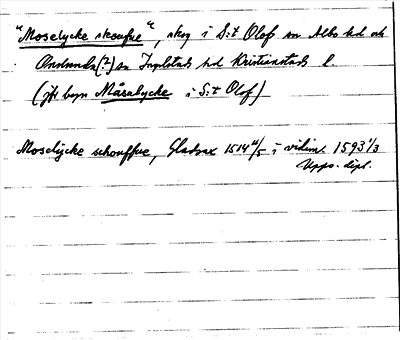 "Moselycke skouffue", skog i S:t Olof sn Albo hd och
Onslunda(?) sn Ingelstads hd Kristianstads l
(jfr byn Måsalycke i S:t Olof)
Moselÿcke schouffue, Gladsax 1514 4/5 i vidim. 1593 1/3
Upps. dipl.